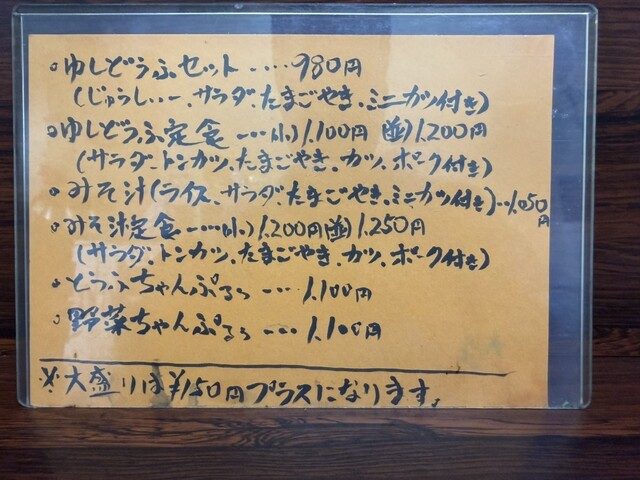 ○ゆしどうふセット……980円
(じゅうしぃー、サラダ、たまごやき、ミニカツ付き)
○ゆしどうふ定食……(小)1,100円 (並)1,200円
(サラダ、トンカツ、たまごやき、カツ、ポーク付き)
○みそ汁(ライス、サラダ、たまごやき、ミニカツ付き)…1,050円
○みそ汁定食……(小)1,200円(並)1,250円
(サラダ、トンカツ、たまごやき、カツ、ポーク付き)
○とうふちゃんぷるぅ……1,100円
○野菜ちゃんぷるぅ……1,100円
※大盛りは¥150円プラスになります。